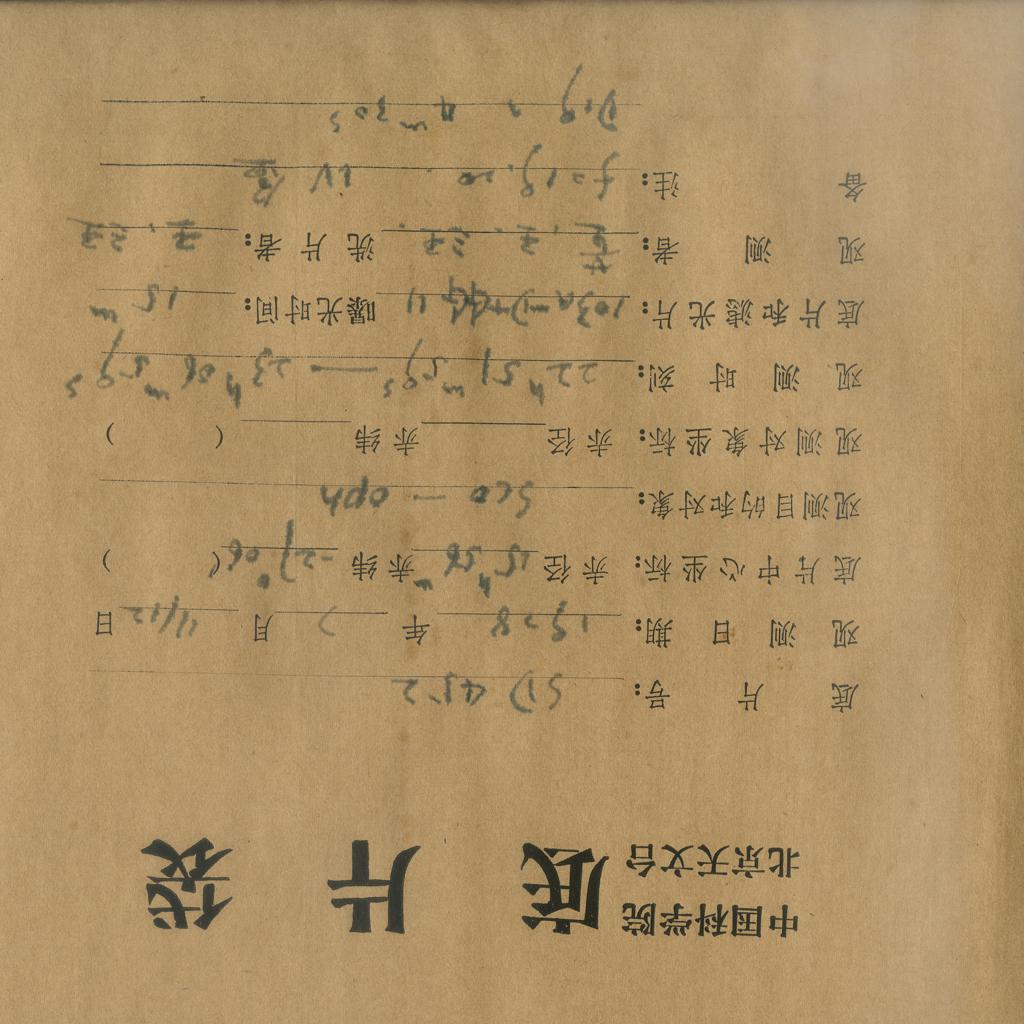 中国科学院
北京天文台
底片袋
底片号: SD 4552
观测日期: 1978年7月11/12日
底片中心坐标: 赤径 15h 56m 赤纬 -27° 06' ( )
观测目的和对象: Sco — Oph
观测对象坐标: 赤径 赤纬 ( )
观测时刻: 22h 51m 59s — 23h 06m 59s
底片和滤光片: 103a-D+ 11 曝光时间: 15m
观测者: 洗片者:
备注: f=19.20 IV
4m 30s